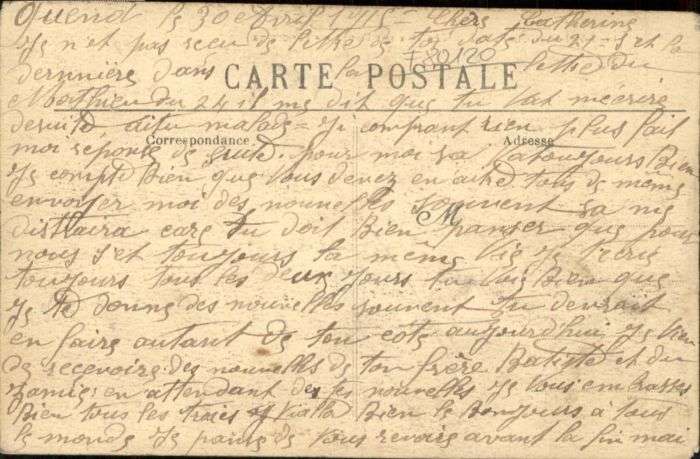 le 30 Avril 1915 = Chère Catherine
Je n'et pas recu de letre de toi date du 21 - s'et la
dernnière dans la letre du
180120
CARTE POSTALE
Mathieu du 24 il me dit que tu vat mécrire
de suite aitu malade = Je comprant rien plus fait
Correspondance
Adresse
moi réponse de suite. pour moi sa va toujours Bien
Je compte Bien que vous devez en aitre tous de même
envoyer moi des nouvelles souvent sa me
M
distraira care tu doit Bien panser que pour
nous s'et toujours la même vie Je t'ecris
toujours tous les deux jours tu vois Bien que
Je te donne des nouvelles souvent tu devrait
en faire autant de ton coté aujourd'hui Je vien
de recevoire des nouvelles de ton frère Batiste et du
en attendant de tes nouvelles Je vous embrasses
Bien tous les trois Bien le Bonjours à tous
le monde Je panse de vous revoir avant la fin mai